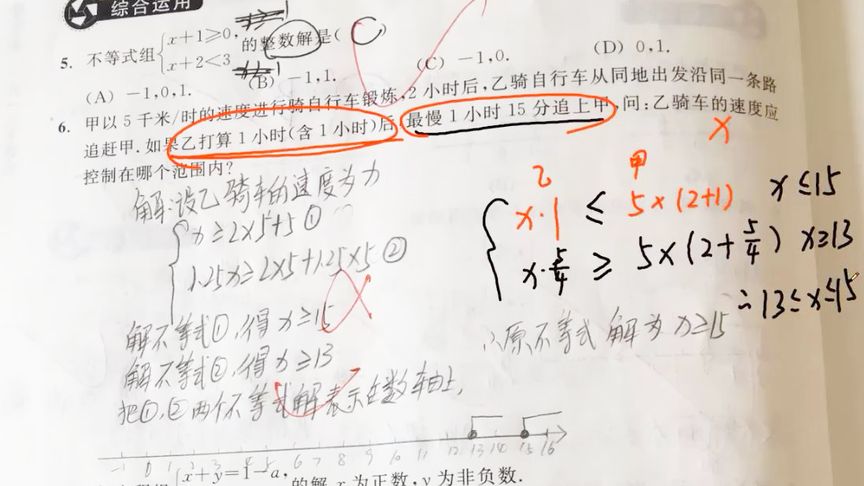 综合运用
5. 不等式组{x+1≥0, x+2<3 的整数解是( C
(A) -1,0,1. (B) -1,1. (C) -1,0. (D) 0,1.
6. 甲以5千米/时的速度进行骑自行车锻炼,2小时后,乙骑自行车从同地出发沿同一条路
追赶甲.如果乙打算1小时(含1小时)后,最慢1小时15分追上甲,问:乙骑车的速度应
控制在哪个范围内?
解:设乙骑车的速度为x
x≥2×5+5 ①
1.25x≥2×5+1.25×5 ②
解不等式①,得x≥15
解不等式②,得x≥13
把①,②两个不等式解表示在数轴上,
∴原不等式解为x≥15
x
乙 甲
x·1 ≤ 5×(2+1) x≤15
x·5/4 ≥ 5×(2+5/4) x≥13
∴13≤x≤15
-1 0 1 2 3 4 5 6 7 8 9 10 11 12 13 14 15 16
{x+y=1-a, 的解x为正数,y为非负数.